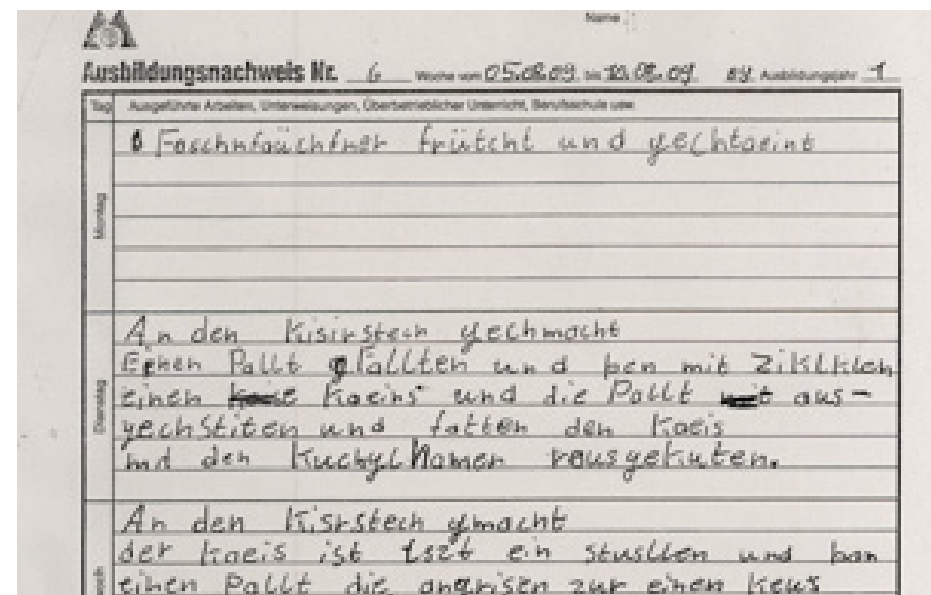 Name :
Ausbildungsnachweis Nr. 6 Woche vom 05.08.09 bis 10.08.09 Ausbildungsjahr 1
Tag Ausgeführte Arbeiten, Unterweisungen, Überbetrieblicher Unterricht, Berufsschule usw.
Montag
frütcht und gechtaeint
Dienstag
An den Kisirstech gechmacht
Einen Pallt gfallten und ben mit Ziklklen
einen Kaeins und die Pallt aus-
gechstiten und fatten den Kaeis
md den Kuchyl Hamer rausgekuten.
An den Kisrstech gmacht
der Kaeis ist iszt ein stusllen und ban
einen Pallt die angrisen zur einen Keus